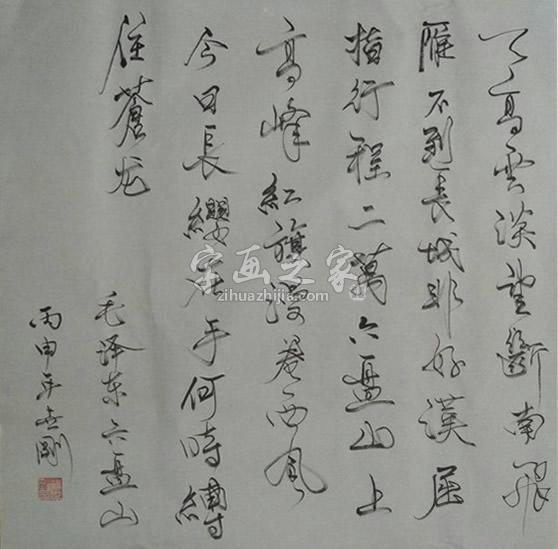 天高雲淡望斷南飛
雁不到長城非好漢屈
指行程二萬六盘山上
高峰紅旗漫卷西風
今日長纓在手何時縛
住蒼龙
毛泽东六盘山
丙申年剛
字画之家
zihuazhijia.com